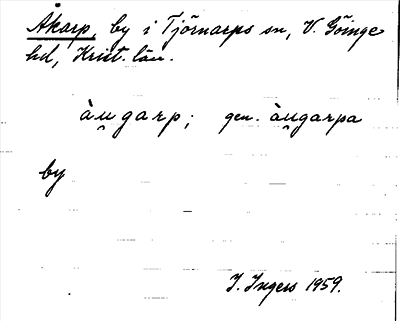 Åkarp, by i Tjörnarps sn, V. Göinge
hd, Krist. län.
àu̯garp; gen. àu̯garpa
by
I. Ingers 1959.